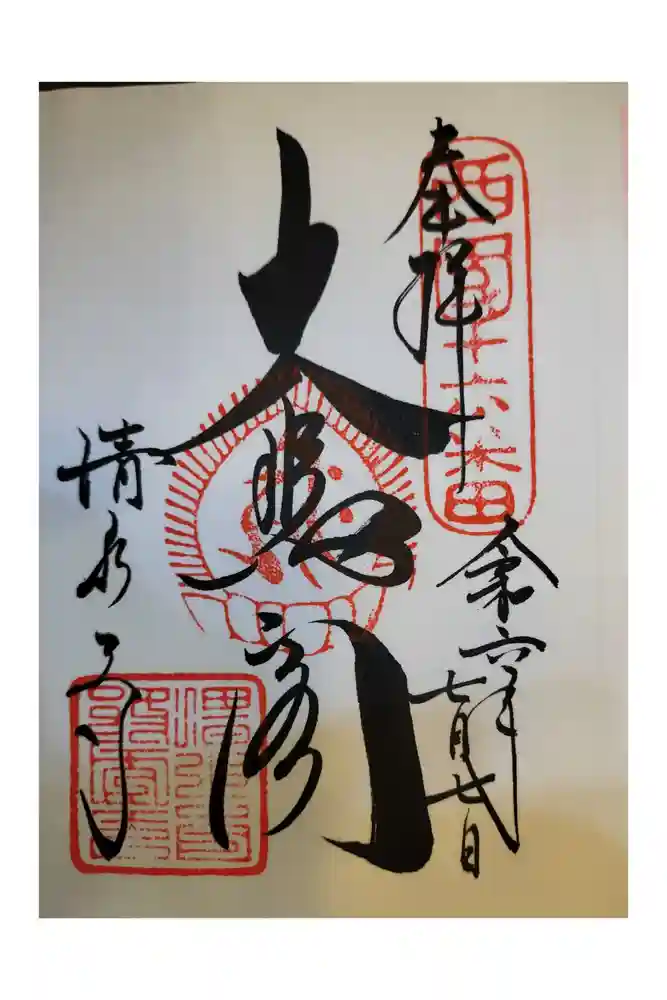 西国十六番
奉拝
令和六年
七月七日
大悲閣
清水寺